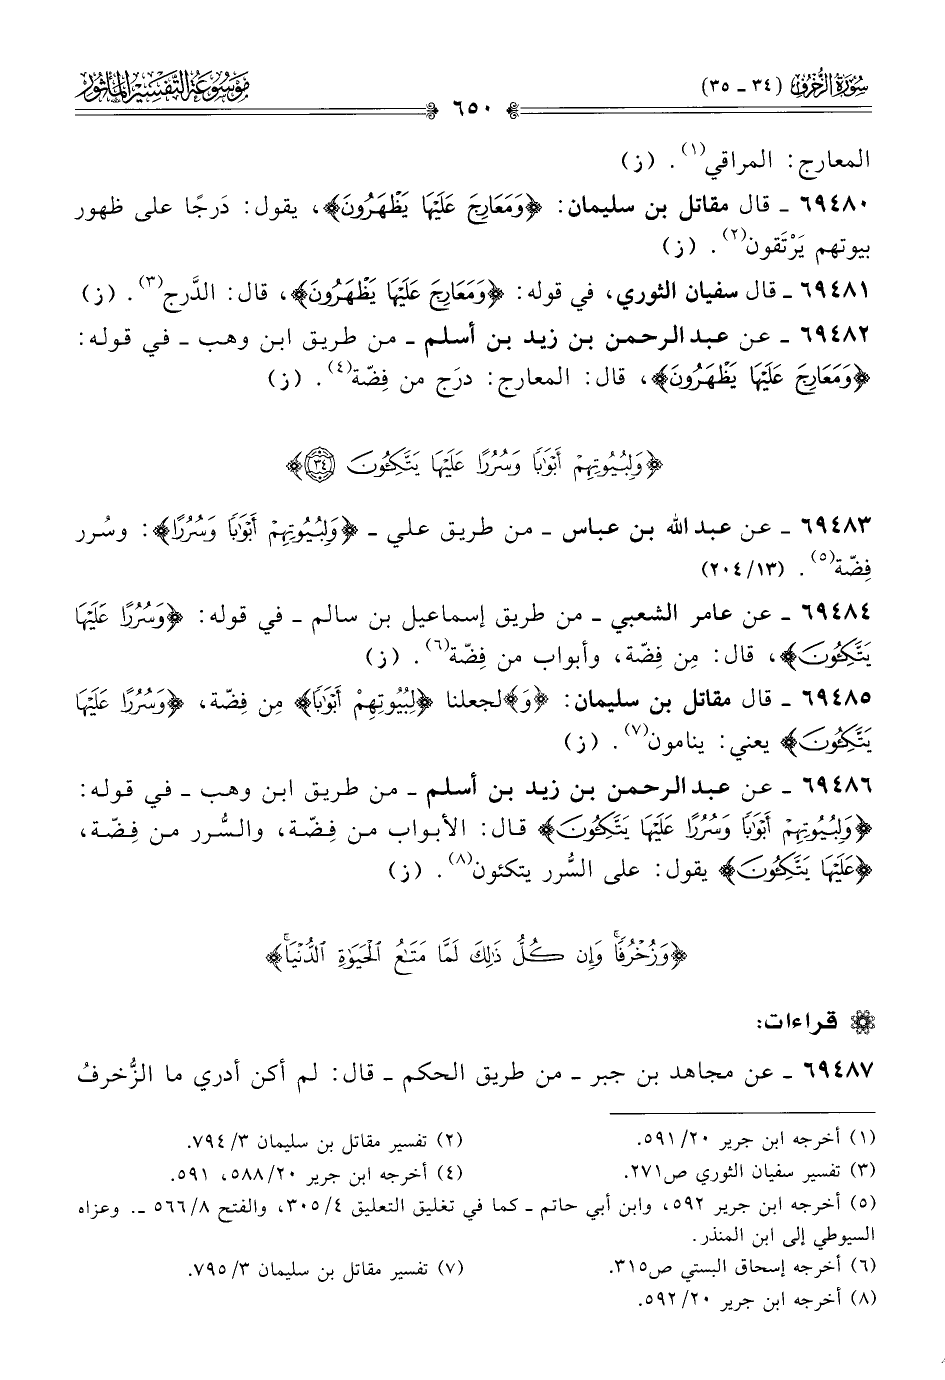 سُورَةُ الزُّخْرُفِ (٣٤ - ٣٥)
٦٥٠
مَوْسُوعَةُ التَّفْسِيرِ المَأْثُورِ
المعارج: المراقي(١). (ز)
٦٩٤٨٠ - قال مقاتل بن سليمان: ﴿وَمَعَارِجَ عَلَيْهَا يَظْهَرُونَ﴾، يقول: دَرجًا على ظهور
بيوتهم يَرْتَقون(٢). (ز)
٦٩٤٨١ - قال سفيان الثوري، في قوله: ﴿وَمَعَارِجَ عَلَيْهَا يَظْهَرُونَ﴾، قال: الدَّرج(٣). (ز)
٦٩٤٨٢ - عن عبد الرحمن بن زيد بن أسلم - من طريق ابن وهب - في قوله:
﴿وَمَعَارِجَ عَلَيْهَا يَظْهَرُونَ﴾، قال: المعارج: درَج من فِضّة(٤). (ز)
﴿وَلِبُيُوتِهِمْ أَبْوَٰبًا وَسُرُرًا عَلَيْهَا يَتَّكِـُٔونَ ٣٤﴾
٦٩٤٨٣ - عن عبد الله بن عباس - من طريق علي - ﴿وَلِبُيُوتِهِمْ أَبْوَٰبًا وَسُرُرًا﴾: وسُرر
فِضّة(٥). (٢٠٤/١٣)
٦٩٤٨٤ - عن عامر الشعبي - من طريق إسماعيل بن سالم - في قوله: ﴿وَسُرُرًا عَلَيْهَا
يَتَّكِـُٔونَ﴾، قال: مِن فِضّة، وأبواب من فِضّة(٦). (ز)
٦٩٤٨٥ - قال مقاتل بن سليمان: ﴿وَ﴾لجعلنا ﴿لِبُيُوتِهِمْ أَبْوَٰبًا﴾ مِن فِضّة، ﴿وَسُرُرًا عَلَيْهَا
يَتَّكِـُٔونَ﴾ يعني: ينامون(٧). (ز)
٦٩٤٨٦ - عن عبد الرحمن بن زيد بن أسلم - من طريق ابن وهب - في قوله:
﴿وَلِبُيُوتِهِمْ أَبْوَٰبًا وَسُرُرًا عَلَيْهَا يَتَّكِـُٔونَ﴾ قال: الأبواب من فِضّة، والسُّرر من فِضّة،
﴿عَلَيْهَا يَتَّكِـُٔونَ﴾ يقول: على السُّرر يتكئون(٨). (ز)
﴿وَزُخْرُفًاۚ وَإِن كُلُّ ذَٰلِكَ لَمَّا مَتَٰعُ الْحَيَوٰةِ الدُّنْيَاۚ﴾
قراءات:
٦٩٤٨٧ - عن مجاهد بن جبر - من طريق الحكم - قال: لم أكن أدري ما الزُّخرفُ
(١) أخرجه ابن جرير ٢٠/ ٥٩١.
(٢) تفسير مقاتل بن سليمان ٣/ ٧٩٤.
(٣) تفسير سفيان الثوري ص٢٧١.
(٤) أخرجه ابن جرير ٢٠/ ٥٨٨، ٥٩١.
(٥) أخرجه ابن جرير ٥٩٢، وابن أبي حاتم - كما في تغليق التعليق ٤/ ٣٠٥، والفتح ٨/ ٥٦٦ -. وعزاه
السيوطي إلى ابن المنذر.
(٦) أخرجه إسحاق البستي ص٣١٥.
(٧) تفسير مقاتل بن سليمان ٣/ ٧٩٥.
(٨) أخرجه ابن جرير ٢٠/ ٥٩٢.